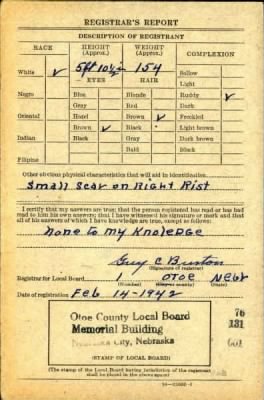 REGISTRAR'S REPORT
DESCRIPTION OF REGISTRANT
RACE HEIGHT (Approx.) WEIGHT (Approx.) COMPLEXION
White ✓ 5ft 10½ in 154 Sallow
EYES HAIR Light
Negro Blue Blonde Ruddy ✓
Gray Red Dark
Oriental Hazel Brown ✓ Freckled
Brown ✓ Black Light brown
Indian Black Gray Dark brown
Bald Black
Filipino
Other obvious physical characteristics that will aid in identification
Small Scar on Right Rist
I certify that my answers are true; that the person registered has read or has had
read to him his own answers; that I have witnessed his signature or mark and that
all of his answers of which I have knowledge are true, except as follows:
None to my Knoledge
Guy C Burton
(Signature of registrar)
Registrar for Local Board 1 OTOE Nebr
(Number) (City or county) (State)
Date of registration Feb 14-1942
Otoe County Local Board 76
Memorial Building 131
Nebraska City, Nebraska
(STAMP OF LOCAL BOARD)
(The stamp of the Local Board having jurisdiction of the registrant
shall be placed in the above space.)